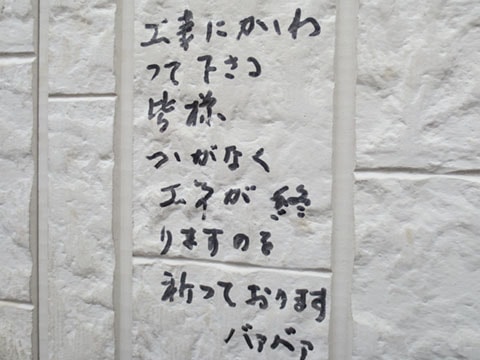 工事にかいわ
って下さる
皆様、
つがなく
工事が終
りますのを
祈っております
バァバァ